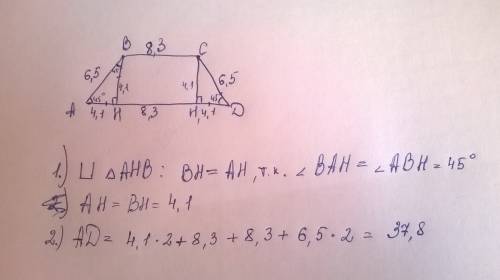 B 8,3 C
6,5 45° 4,1 4,1 6,5
A 45° 4,1 H 8,3 H₁ 4,1 45° D
1.) ⊔ △AHB: BH = AH, т.к. ∠BAH = ∠ABH = 45°
AH = BH = 4,1
2.) AD = 4,1·2 + 8,3 + 8,3 + 6,5·2 = 37,8